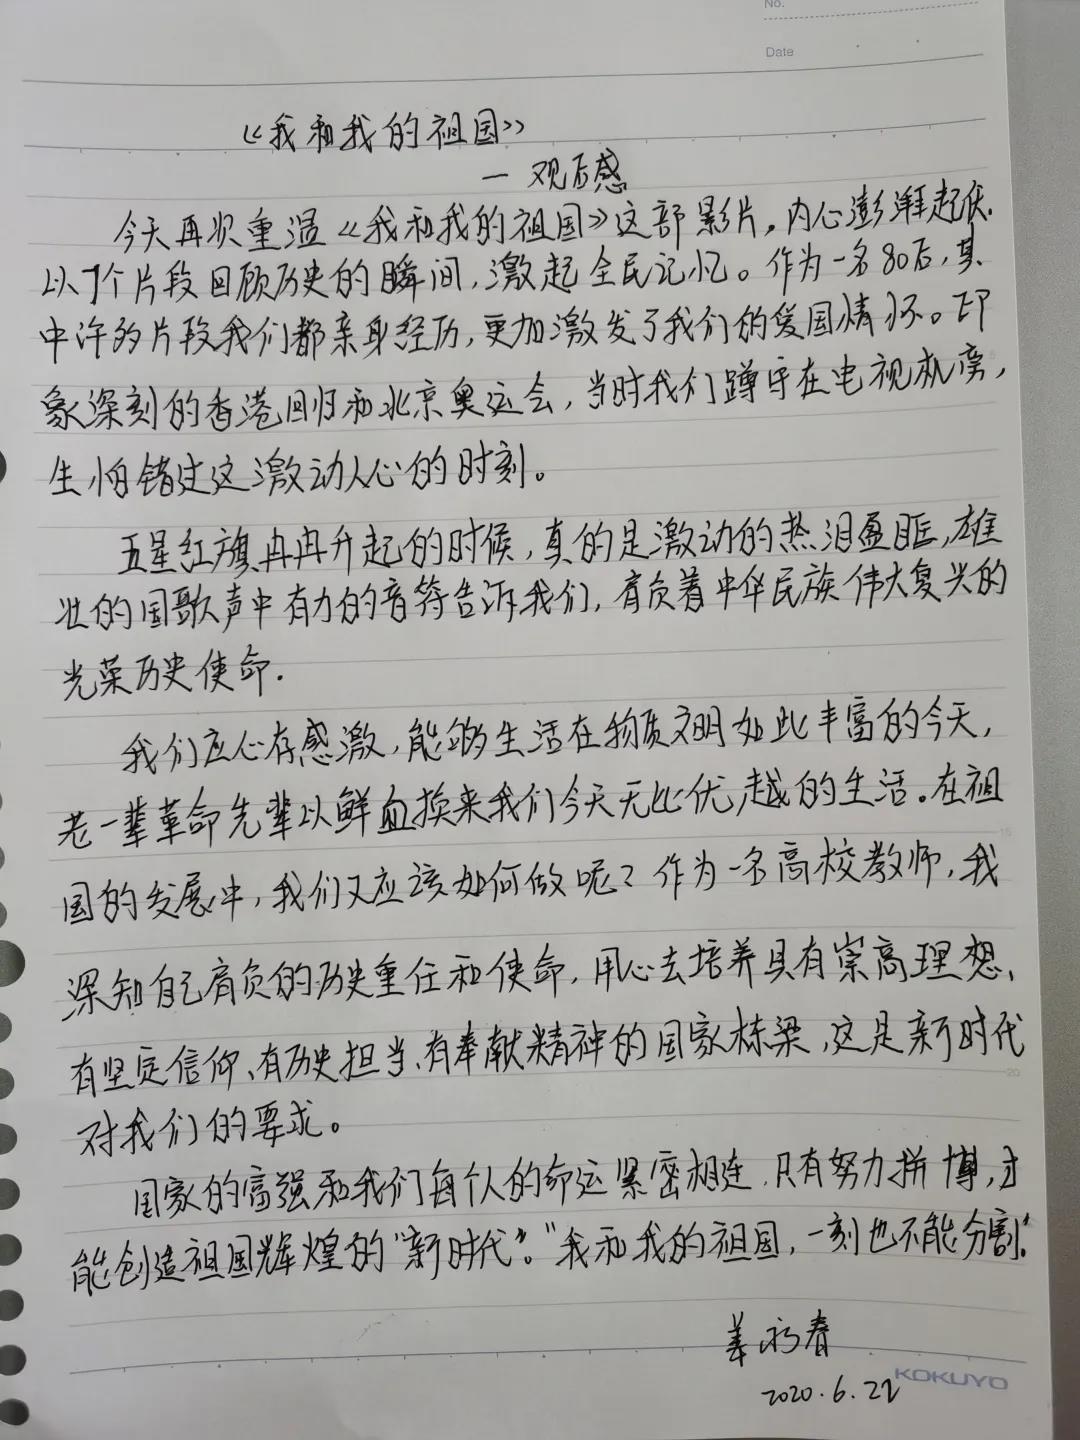 No.
Date
《我和我的祖国》
— 观后感
今天再次重温《我和我的祖国》这部影片,内心澎湃起伏.
以7个片段回顾历史的瞬间,激起全民记忆。作为一名80后,其
中许多片段我们都亲身经历,更加激发了我们的爱国情怀。印
象深刻的香港回归和北京奥运会,当时我们蹲守在电视机旁,
生怕错过这激动人心的时刻。
五星红旗冉冉升起的时候,真的是激动的热泪盈眶,雄
壮的国歌声中有力的音符告诉我们,肩负着中华民族伟大复兴的
光荣历史使命.
我们应心存感激,能够生活在物质文明如此丰富的今天,
老一辈革命先辈以鲜血换来我们今天无比优越的生活。在祖
国的发展中,我们又应该如何做呢?作为一名高校教师,我
深知自己肩负的历史重任和使命,用心去培养具有崇高理想、
有坚定信仰、有历史担当、有奉献精神的国家栋梁,这是新时代
对我们的要求。
国家的富强和我们每个人的命运紧密相连,只有努力拼博,才
能创造祖国辉煌的“新时代”。“我和我的祖国,一刻也不能分割”.
姜永春
2020.6.22
KOKUYO
15
20